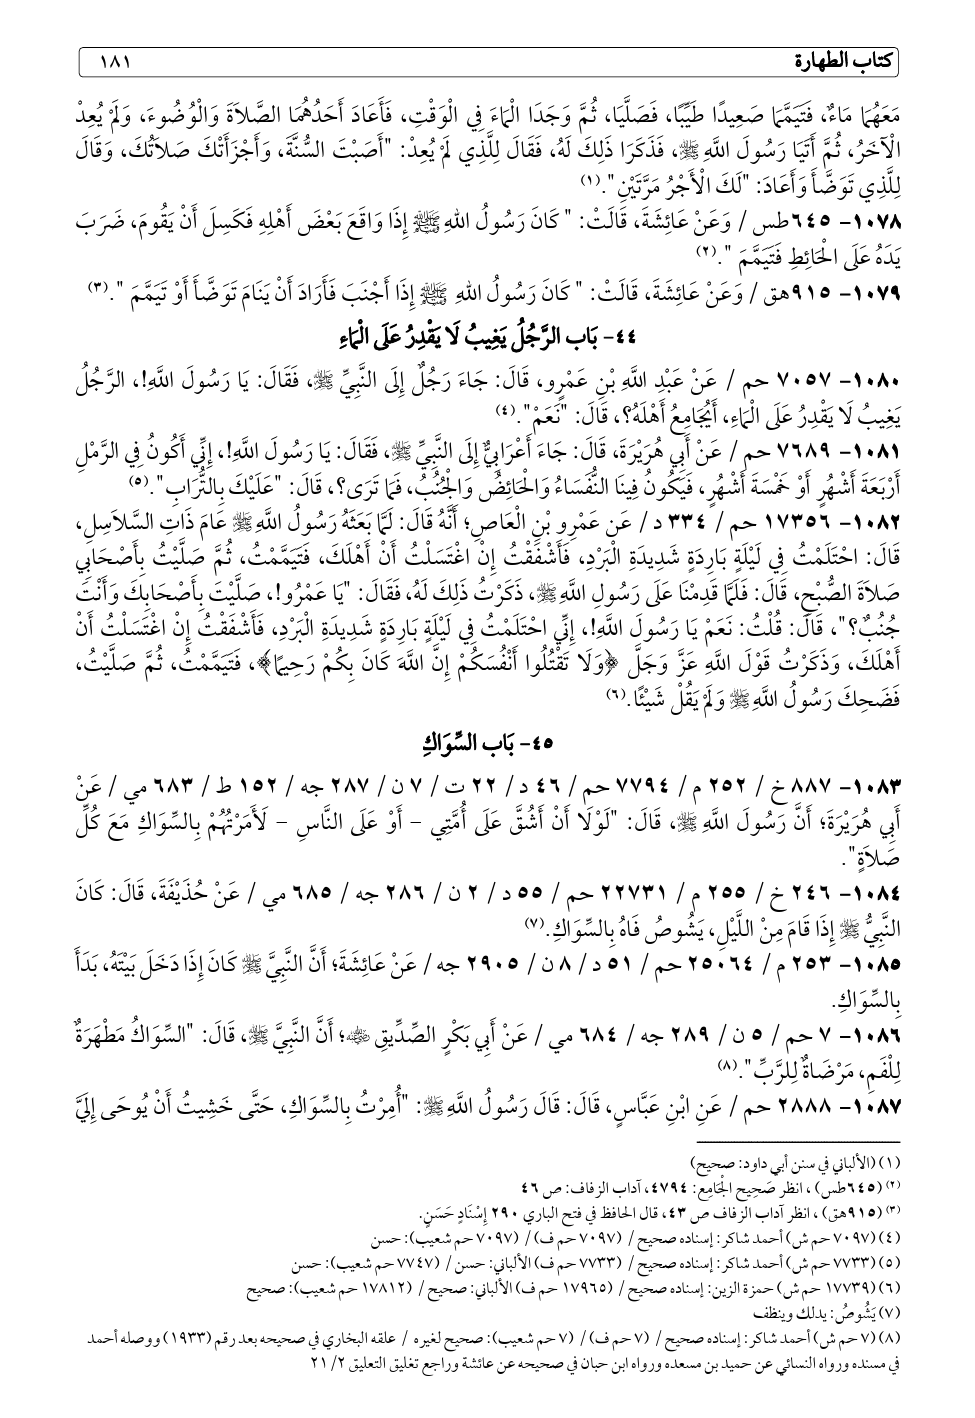 كتاب الطهارة ١٨١
مَعَهُمَا مَاءٌ، فَتَيَمَّمَا صَعِيدًا طَيِّبًا، فَصَلَّيَا، ثُمَّ وَجَدَا الْمَاءَ فِي الْوَقْتِ، فَأَعَادَ أَحَدُهُمَا الصَّلَاةَ وَالْوُضُوءَ، وَلَمْ يُعِدْ
الْآخَرُ، ثُمَّ أَتَيَا رَسُولَ اللَّهِ ﷺ، فَذَكَرَا ذَلِكَ لَهُ، فَقَالَ لِلَّذِي لَمْ يُعِدْ: "أَصَبْتَ السُّنَّةَ، وَأَجْزَأَتْكَ صَلَاتُكَ، وَقَالَ
لِلَّذِي تَوَضَّأَ وَأَعَادَ: "لَكَ الْأَجْرُ مَرَّتَيْنِ".(١)
١٠٧٨- ٦٤٥طس / وَعَنْ عَائِشَةَ، قَالَتْ: " كَانَ رَسُولُ اللهِ ﷺ إِذَا وَاقَعَ بَعْضَ أَهْلِهِ فَكَسِلَ أَنْ يَقُومَ، ضَرَبَ
يَدَهُ عَلَى الْحَائِطِ فَتَيَمَّمَ ".(٢)
١٠٧٩- ٩١٥هق / وَعَنْ عَائِشَةَ، قَالَتْ: " كَانَ رَسُولُ اللهِ ﷺ إِذَا أَجْنَبَ فَأَرَادَ أَنْ يَنَامَ تَوَضَّأَ أَوْ تَيَمَّمَ ".(٣)
٤٤- بَاب الرَّجُلُ يَغِيبُ لَا يَقْدِرُ عَلَى الْمَاءِ
١٠٨٠- ٧٠٥٧ حم / عَنْ عَبْدِ اللَّهِ بْنِ عَمْرٍو، قَالَ: جَاءَ رَجُلٌ إِلَى النَّبِيِّ ﷺ، فَقَالَ: يَا رَسُولَ اللَّهِ!، الرَّجُلُ
يَغِيبُ لَا يَقْدِرُ عَلَى الْمَاءِ، أَيُجَامِعُ أَهْلَهُ؟، قَالَ: "نَعَمْ".(٤)
١٠٨١- ٧٦٨٩ حم / عَنْ أَبِي هُرَيْرَةَ، قَالَ: جَاءَ أَعْرَابِيٌّ إِلَى النَّبِيِّ ﷺ، فَقَالَ: يَا رَسُولَ اللَّهِ!، إِنِّي أَكُونُ فِي الرَّمْلِ
أَرْبَعَةَ أَشْهُرٍ أَوْ خَمْسَةَ أَشْهُرٍ، فَيَكُونُ فِينَا النُّفَسَاءُ وَالْحَائِضُ وَالْجُنُبُ، فَمَا تَرَى؟، قَالَ: "عَلَيْكَ بِالتُّرَابِ".(٥)
١٠٨٢- ١٧٣٥٦ حم / ٣٣٤ د/ عَن عَمْرِو بْنِ الْعَاصِ؛ أَنَّهُ قَالَ: لَمَّا بَعَثَهُ رَسُولُ اللَّهِ ﷺ عَامَ ذَاتِ السَّلَاسِلِ،
قَالَ: احْتَلَمْتُ فِي لَيْلَةٍ بَارِدَةٍ شَدِيدَةِ الْبَرْدِ، فَأَشْفَقْتُ إِنِ اغْتَسَلْتُ أَنْ أَهْلَكَ، فَتَيَمَّمْتُ، ثُمَّ صَلَّيْتُ بِأَصْحَابِي
صَلَاةَ الصُّبْحِ، قَالَ: فَلَمَّا قَدِمْنَا عَلَى رَسُولِ اللَّهِ ﷺ، ذَكَرْتُ ذَلِكَ لَهُ، فَقَالَ: "يَا عَمْرُو!، صَلَّيْتَ بِأَصْحَابِكَ وَأَنْتَ
جُنُبٌ؟"، قَالَ: قُلْتُ: نَعَمْ يَا رَسُولَ اللَّهِ!، إِنِّي احْتَلَمْتُ فِي لَيْلَةٍ بَارِدَةٍ شَدِيدَةِ الْبَرْدِ، فَأَشْفَقْتُ إِنِ اغْتَسَلْتُ أَنْ
أَهْلَكَ، وَذَكَرْتُ قَوْلَ اللَّهِ عَزَّ وَجَلَّ ﴿وَلَا تَقْتُلُوا أَنْفُسَكُمْ إِنَّ اللَّهَ كَانَ بِكُمْ رَحِيمًا﴾، فَتَيَمَّمْتُ، ثُمَّ صَلَّيْتُ،
فَضَحِكَ رَسُولُ اللَّهِ ﷺ وَلَمْ يَقُلْ شَيْئًا.(٦)
٤٥- بَاب السِّوَاكِ
١٠٨٣- ٨٨٧ خ / ٢٥٢ م / ٧٧٩٤ حم / ٤٦ د/ ٢٢ ت / ٧ ن / ٢٨٧ جه / ١٥٢ ط / ٦٨٣ مي / عَنْ
أَبِي هُرَيْرَةَ؛ أَنَّ رَسُولَ اللَّهِ ﷺ، قَالَ: "لَوْلَا أَنْ أَشُقَّ عَلَى أُمَّتِي – أَوْ عَلَى النَّاسِ – لَأَمَرْتُهُمْ بِالسِّوَاكِ مَعَ كُلِّ
صَلَاةٍ".
١٠٨٤- ٢٤٦ خ / ٢٥٥ م / ٢٢٧٣١ حم / ٥٥ د / ٢ ن / ٢٨٦ جه / ٦٨٥ مي / عَنْ حُذَيْفَةَ، قَالَ: كَانَ
النَّبِيُّ ﷺ إِذَا قَامَ مِنْ اللَّيْلِ، يَشُوصُ فَاهُ بِالسِّوَاكِ.(٧)
١٠٨٥- ٢٥٣ م / ٢٥٠٦٤ حم / ٥١ د/ ٨ ن / ٢٩٠٥ جه / عَنْ عَائِشَةَ؛ أَنَّ النَّبِيَّ ﷺ كَانَ إِذَا دَخَلَ بَيْتَهُ، بَدَأَ
بِالسِّوَاكِ.
١٠٨٦- ٧ حم / ٥ ن / ٢٨٩ جه / ٦٨٤ مي / عَنْ أَبِي بَكْرٍ الصِّدِّيقِ ؓ؛ أَنَّ النَّبِيَّ ﷺ، قَالَ: "السِّوَاكُ مَطْهَرَةٌ
لِلْفَمِ، مَرْضَاةٌ لِلرَّبِّ".(٨)
١٠٨٧- ٢٨٨٨ حم / عَنِ ابْنِ عَبَّاسٍ، قَالَ: قَالَ رَسُولُ اللَّهِ ﷺ: "أُمِرْتُ بِالسِّوَاكِ، حَتَّى خَشِيتُ أَنْ يُوحَى إِلَيَّ
(١) (الألباني في سنن أبي داود: صحيح)
(٢) (٦٤٥طس) ، انظر صَحِيح الْجَامِع: ٤٧٩٤، آداب الزفاف: ص ٤٦
(٣) (٩١٥هق) ، انظر آداب الزفاف ص ٤٣، قال الحافظ في فتح الباري ٢٩٠ إِسْنَادٍ حَسَنٍ.
(٤) (٧٠٩٧ حم ش) أحمد شاكر: إسناده صحيح / (٧٠٩٧ حم ف) / (٧٠٩٧ حم شعيب): حسن
(٥) (٧٧٣٣ حم ش) أحمد شاكر: إسناده صحيح / (٧٧٣٣ حم ف) الألباني: حسن / (٧٧٤٧ حم شعيب): حسن
(٦) (١٧٧٣٩ حم ش) حمزة الزين: إسناده صحيح / (١٧٩٦٥ حم ف) الألباني: صحيح / (١٧٨١٢ حم شعيب): صحيح
(٧) يَشُوصُ: يدلك وينظف
(٨) (٧ حم ش) أحمد شاكر: إسناده صحيح / (٧ حم ف) / (٧ حم شعيب): صحيح لغيره / علقه البخاري في صحيحه بعد رقم (١٩٣٣) ووصله أحمد
في مسنده ورواه النسائي عن حميد بن مسعده ورواه ابن حبان في صحيحه عن عائشة وراجع تغليق التعليق ٢/ ٢١